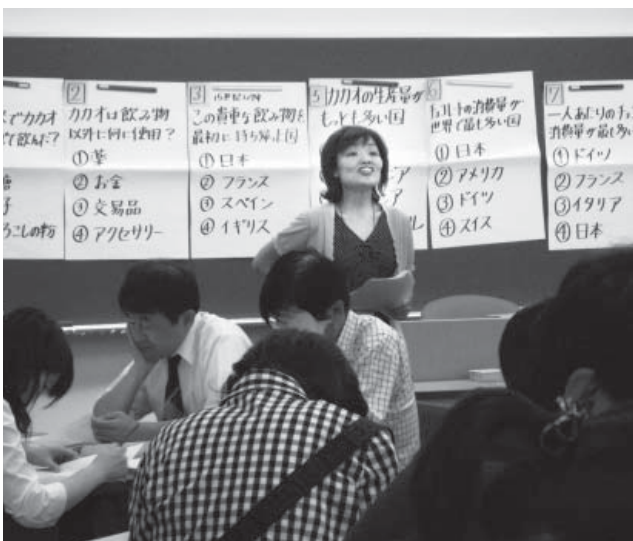 でカカオ
て飲んだ?
ろこしの粉
2
カカオは飲み物
以外に何に使用?
①薬
②お金
③交易品
④アクセサリー
3
この貴重な飲み物を
最初に持ち帰った国
①日本
②フランス
③スペイン
④イギリス
5 カカオの生産量が
もっとも多い国
6
チョコレートの消費量が
世界で最も多い国
①日本
②アメリカ
③ドイツ
④スイス
7
一人あたりのチョコ
消費量が最も多い
①ドイツ
②フランス
③イタリア
④日本